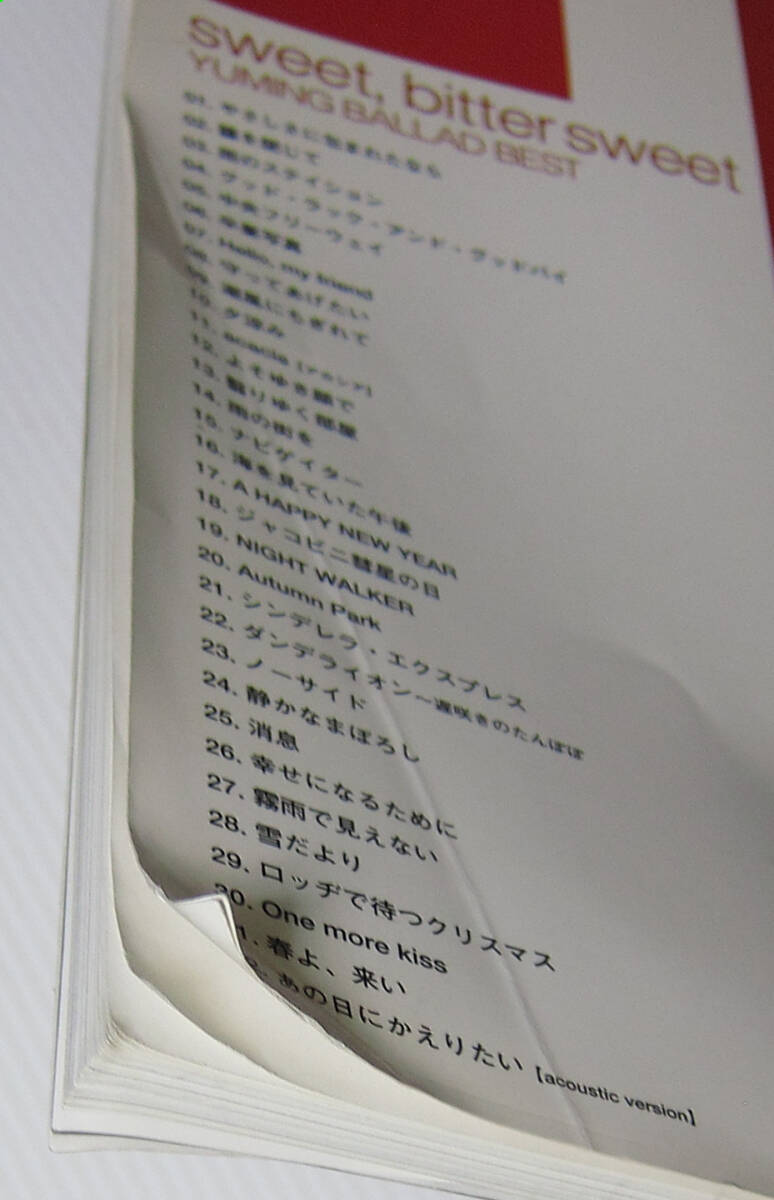 sweet, bitter sweet
YUMING BALLAD BEST
01. やさしさに包まれたなら
02. 瞳を閉じて
03. 雨のステイション
04. グッド・ラック・アンド・グッドバイ
05. 中央フリーウェイ
06. 卒業写真
07. Hello, my friend
08. 守ってあげたい
09. 潮風にちぎれて
10. 夕涼み
11. acacia【アカシア】
12. よそゆき顔で
13. 翳りゆく部屋
14. 雨の街を
15. ナビゲイター
16. 海を見ていた午後
17. A HAPPY NEW YEAR
18. ジャコビニ彗星の日
19. NIGHT WALKER
20. Autumn Park
21. シンデレラ・エクスプレス
22. ダンデライオン〜遅咲きのたんぽぽ
23. ノーサイド
24. 静かなまぼろし
25. 消息
26. 幸せになるために
27. 霧雨で見えない
28. 雪だより
29. ロッヂで待つクリスマス
30. One more kiss
1. 春よ、来い
2. あの日にかえりたい【acoustic version】